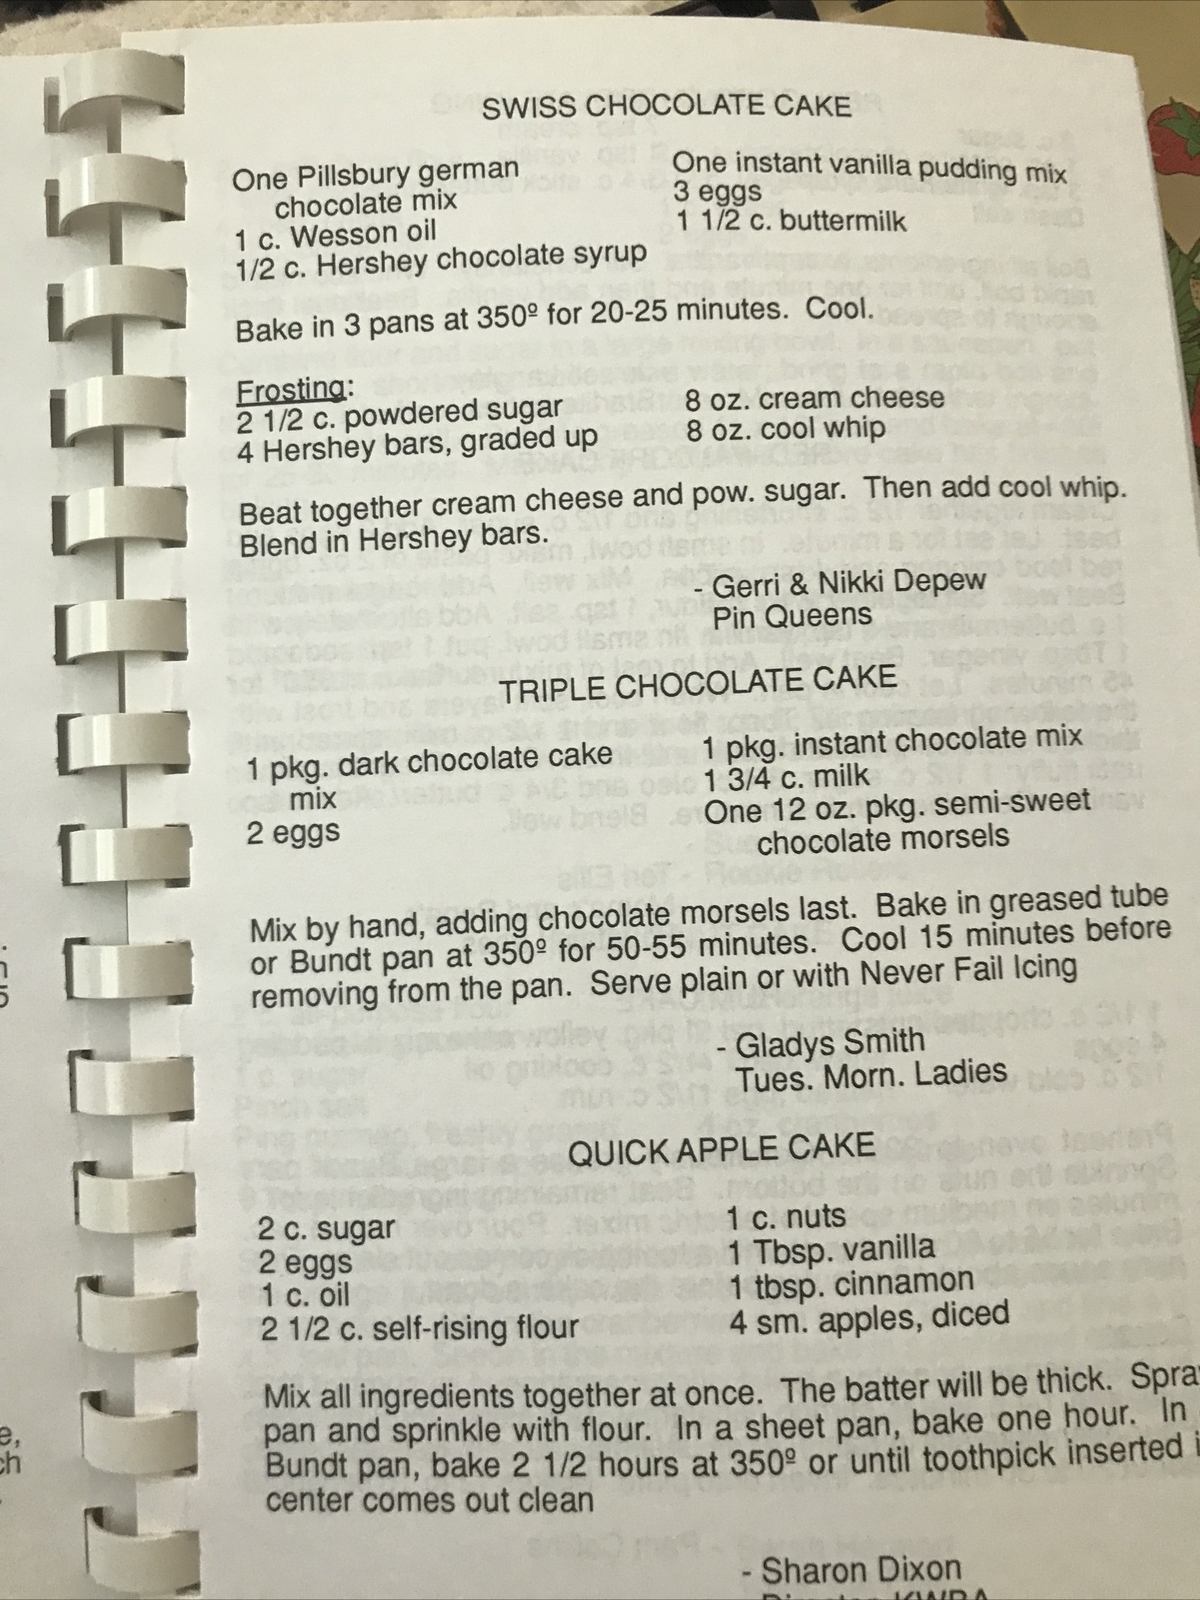 SWISS CHOCOLATE CAKE
One Pillsbury german
chocolate mix
1 c. Wesson oil
1/2 c. Hershey chocolate syrup
One instant vanilla pudding mix
3 eggs
1 1/2 c. buttermilk
Bake in 3 pans at 350º for 20-25 minutes. Cool.
Frosting:
2 1/2 c. powdered sugar
4 Hershey bars, graded up
8 oz. cream cheese
8 oz. cool whip
Beat together cream cheese and pow. sugar. Then add cool whip.
Blend in Hershey bars.
- Gerri & Nikki Depew
Pin Queens
TRIPLE CHOCOLATE CAKE
1 pkg. dark chocolate cake
mix
2 eggs
1 pkg. instant chocolate mix
1 3/4 c. milk
One 12 oz. pkg. semi-sweet
chocolate morsels
Mix by hand, adding chocolate morsels last. Bake in greased tube
or Bundt pan at 350º for 50-55 minutes. Cool 15 minutes before
removing from the pan. Serve plain or with Never Fail Icing
- Gladys Smith
Tues. Morn. Ladies
QUICK APPLE CAKE
2 c. sugar
2 eggs
1 c. oil
2 1/2 c. self-rising flour
1 c. nuts
1 Tbsp. vanilla
1 tbsp. cinnamon
4 sm. apples, diced
Mix all ingredients together at once. The batter will be thick. Spra
pan and sprinkle with flour. In a sheet pan, bake one hour. In
Bundt pan, bake 2 1/2 hours at 350º or until toothpick inserted i
center comes out clean
- Sharon Dixon